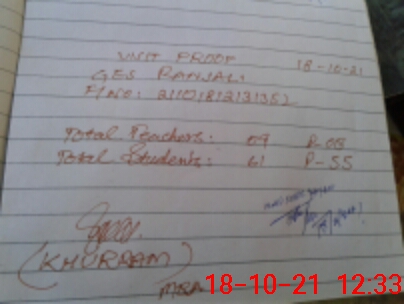 VISIT PROOF 18-10-21
GES RANJALI
Total Teachers: 09 P-08
Total Students: 61 P-55
(KHURRAM)
MEA
18-10-21 12:33